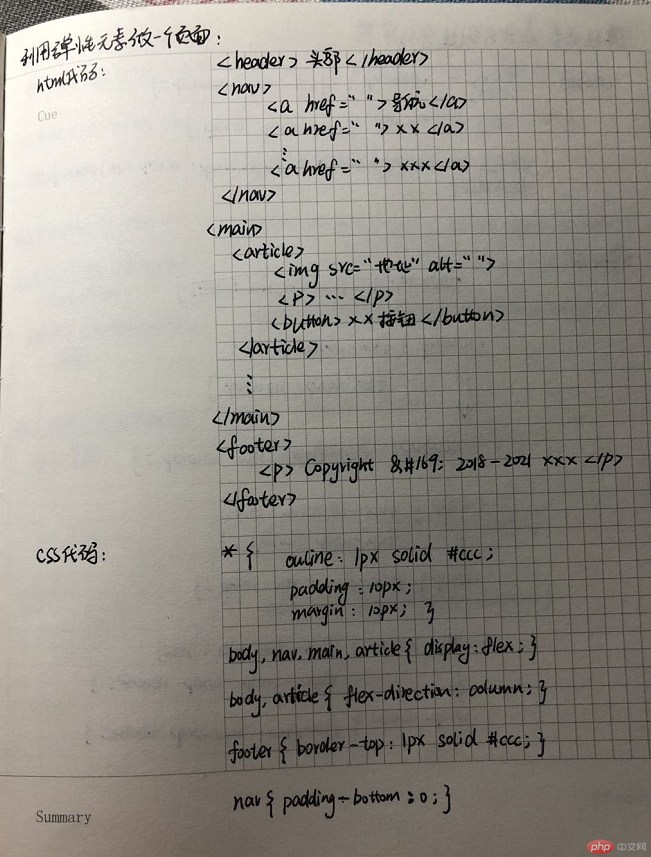 利用弹性元素做一个页面:
html代码:
Cue
<header> 头部 </header>
<nav>
<a href=" "> 导航 </a>
<a href=" "> xx </a>
⋮
<a href=" "> xxx </a>
</nav>
<main>
<article>
<img src="地址" alt=" ">
<p> ... </p>
<button> xx 按钮 </button>
</article>
⋮
</main>
<footer>
<p> Copyright &#169: 2018-2021 xxx </p>
</footer>
CSS代码:
* { ouline: 1px solid #ccc;
padding: 10px;
margin: 10px; }
body, nav, main, article { display: flex; }
body, article { flex-direction: column; }
footer { border-top: 1px solid #ccc; }
nav { padding-bottom: 0; }
Summary
php 中文网